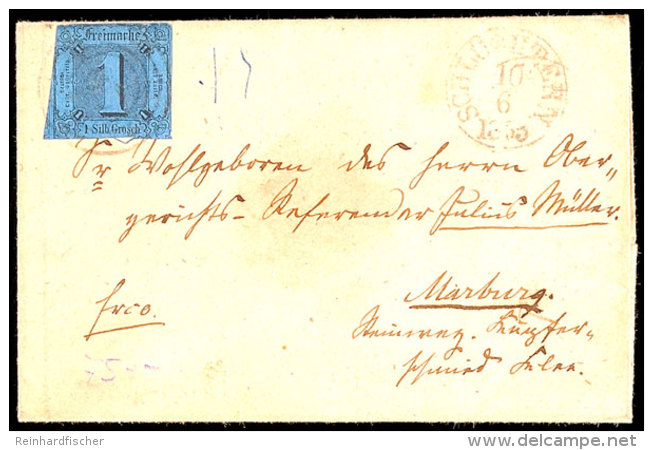 Freimarke
1
1 Silb. Grosch.
10
6
1853
Sr Wohlgeboren des Herrn Ober-
gerichts-Referendar Julius Müller.
Marburg.
frco.
Steinweg. Kupfer-
schmied
Reinhardfischer
www.delcampe.net